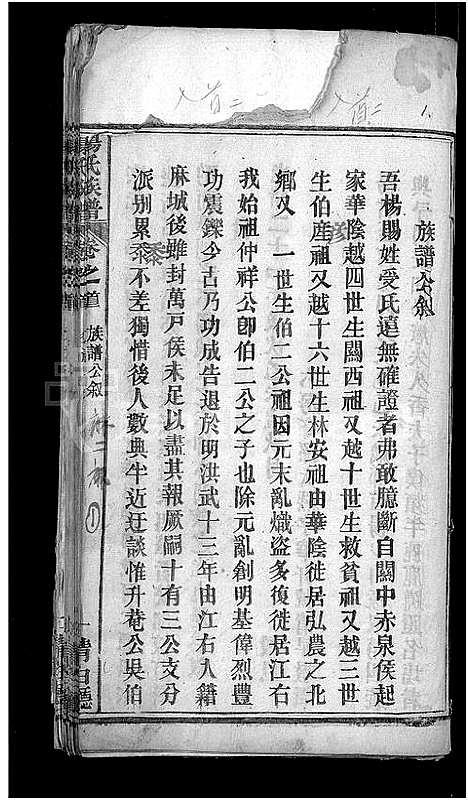 族譜公敘
吾楊賜姓受氏遠無確證者弗敢臆斷自關中赤泉侯起
家華陰越四世生關西祖又越十世生救貧祖又越三世
生伯産祖又越十六世生林安祖由華陰徙居弘農之北
鄉又一世生伯二公祖因元末亂熾盜多復徙居江右
我始祖仲祥公卽伯二公之子也除元亂創明基偉烈豐
功震鑠今古乃功成告退於明洪武十三年由江右入籍
麻城後雖封萬戸侯未足以盡其報厥嗣十有三公支分
派別累黍不差獨惜後人數典半近迂談惟升菴公吳伯
楊氏族譜 卷之首 族譜公敘 一 清白聽
入首二
入首二
1